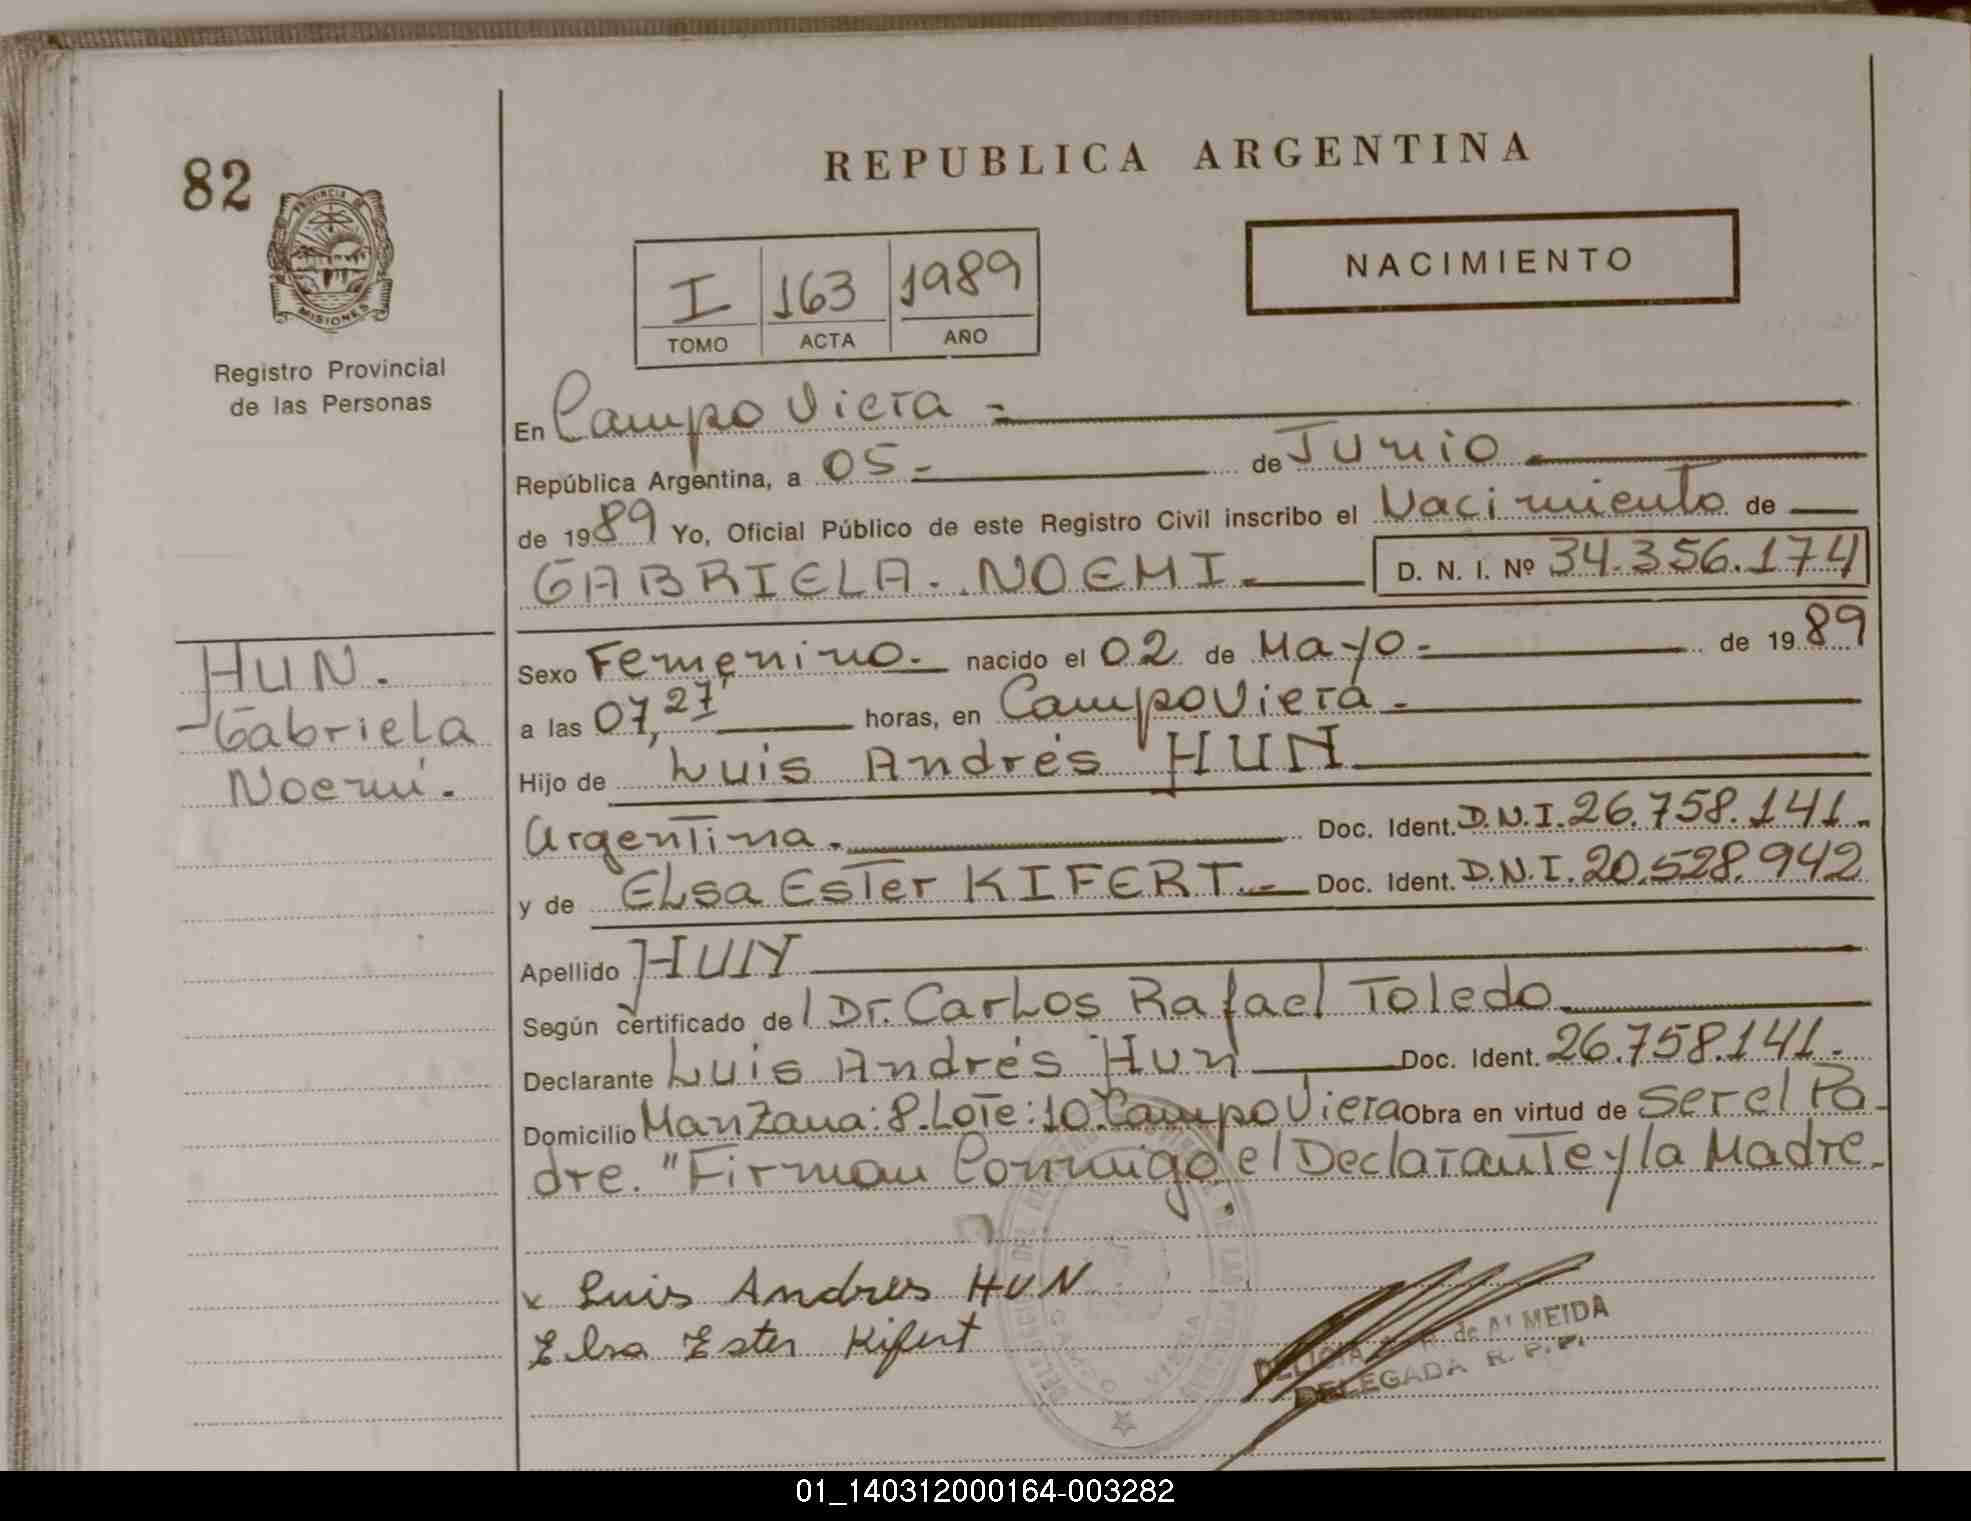 REPUBLICA ARGENTINA
82
PROVINCIA DE
MISIONES
Registro Provincial
de las Personas
I 163 1989
TOMO ACTA AÑO
NACIMIENTO
En Campo Viera =
República Argentina, a 05 - de Junio
de 1989 Yo, Oficial Público de este Registro Civil inscribo el Nacimiento de
GABRIELA . NOEMI . D. N. I. Nº 34.356.174
HUN.
- Gabriela
Noemí.
Sexo Femenino. nacido el 02 de Mayo - de 1989
a las 07,27 horas, en Campo Viera -
Hijo de Luis Andrés HUN
Argentina. Doc. Ident. D.N.I. 26.758.141.
y de ELsa Ester KIFERT.- Doc. Ident. D.N.I. 20.528.942
Apellido HUN
Según certificado del Dr. Carlos Rafael Toledo
Declarante Luis Andrés Hun Doc. Ident. 26.758.141.
Domicilio Manzana: 8. Lote: 10. Campo Viera Obra en virtud de ser el Pa-
dre. "Firman Conmigo el Declarante y la Madre.
x Luis Andres HUN
Elsa Ester Kifert
de ALMEIDA
DELEGADA R. P. P.
CAMPO VIERA
01_140312000164-003282